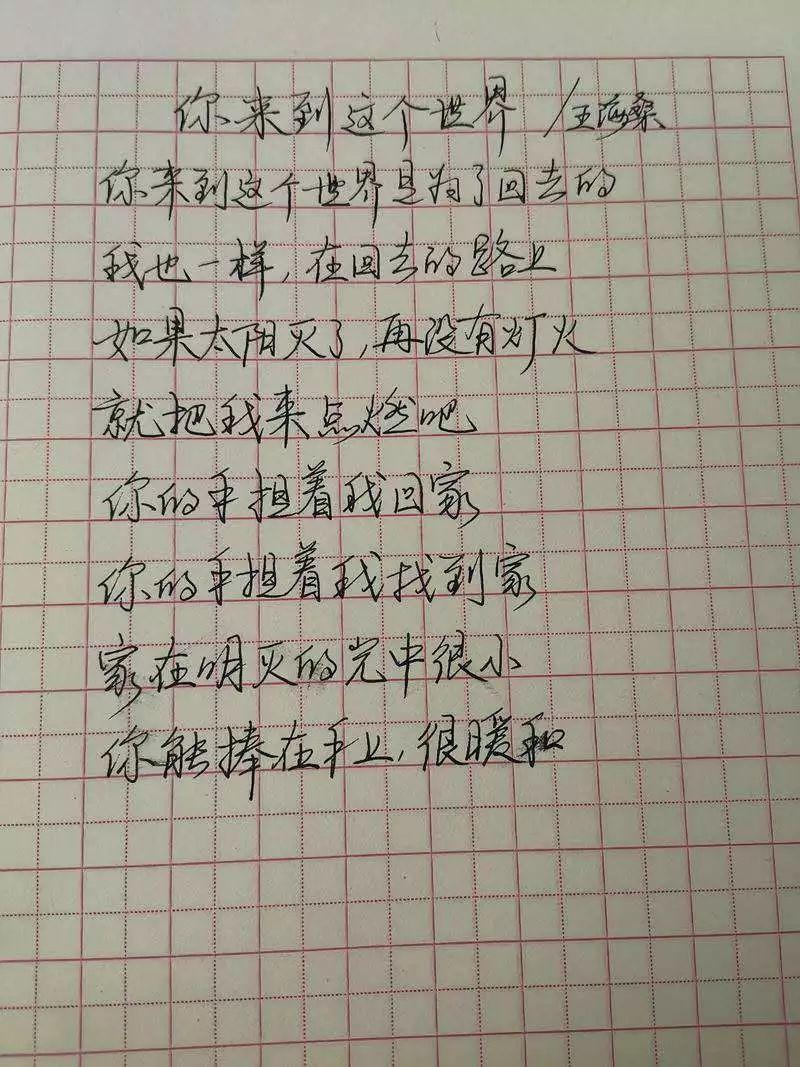 你来到这个世界 /王海桑
你来到这个世界是为了回去的
我也一样,在回去的路上
如果太阳灭了,再没有灯火
就把我来点燃吧
你的手担着我回家
你的手担着我找到家
家在明灭的光中很小
你能捧在手上,很暖和